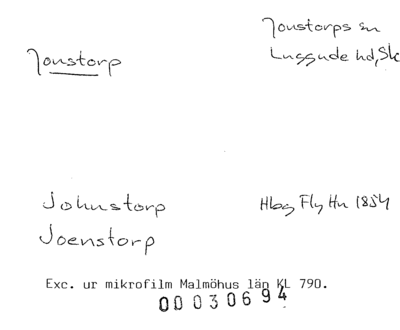 Jonstorp
Jonstorps sn
Luggude hd, Sk
Johnstorp
Joenstorp
Hbg Fly Hn 1854
Exc. ur mikrofilm Malmöhus län KL 790.
0030694